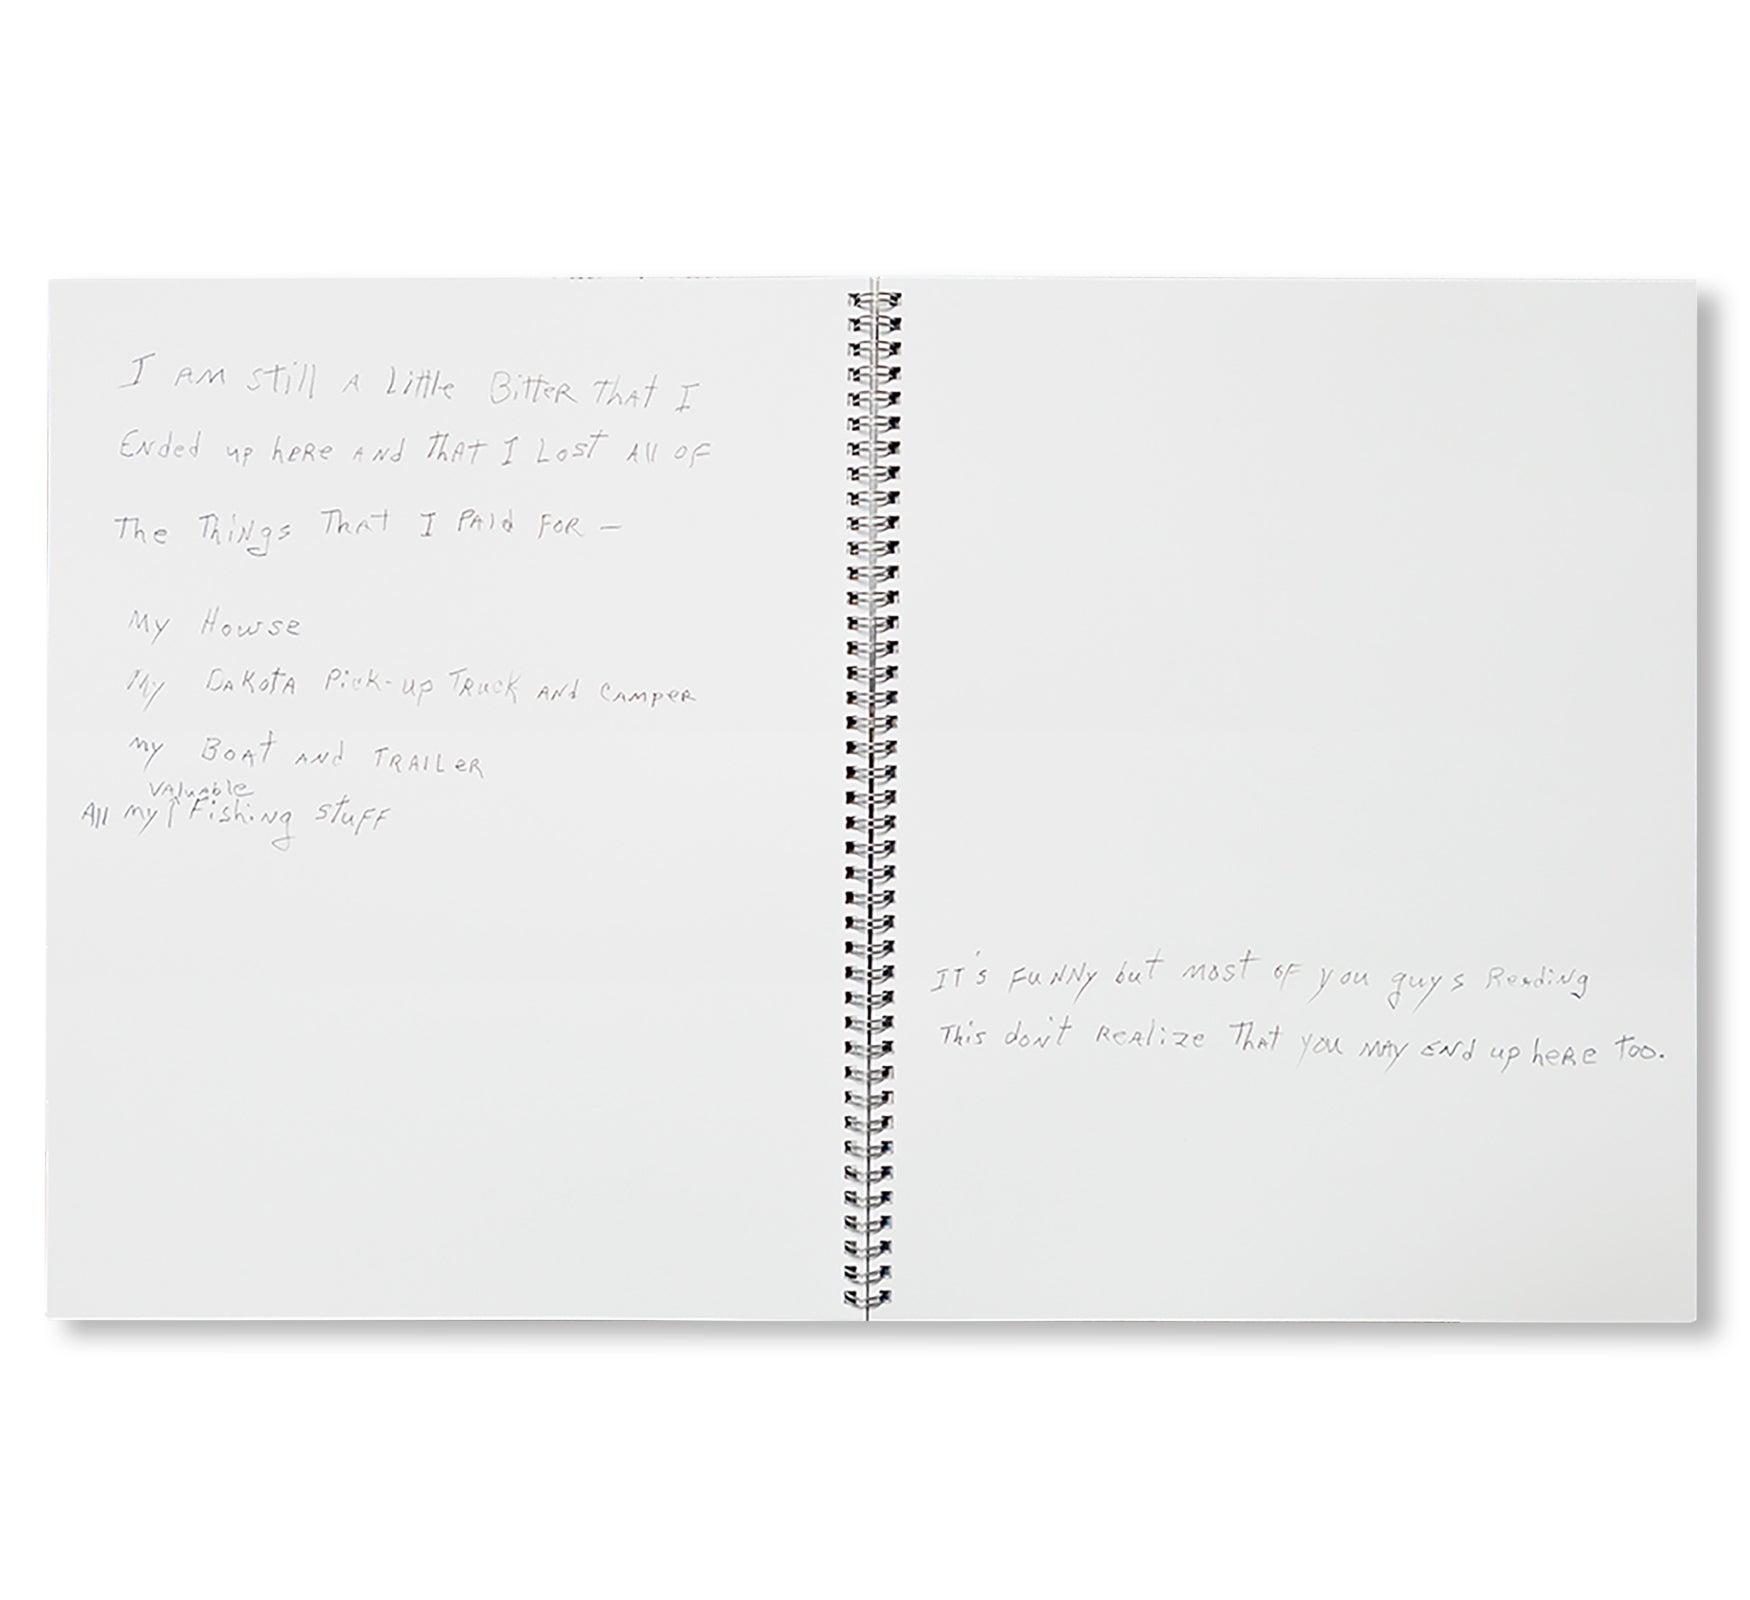 I AM still A Little Bitter That I
Ended up here AND that I Lost All of
The Things That I Paid for —
My Howse
My Dakota Pick-up Truck and camper
my Boat and Trailer
valuable
All my Fishing stuff
It's funny but most of you guys Reading
This don't Realize That you may end up here too.